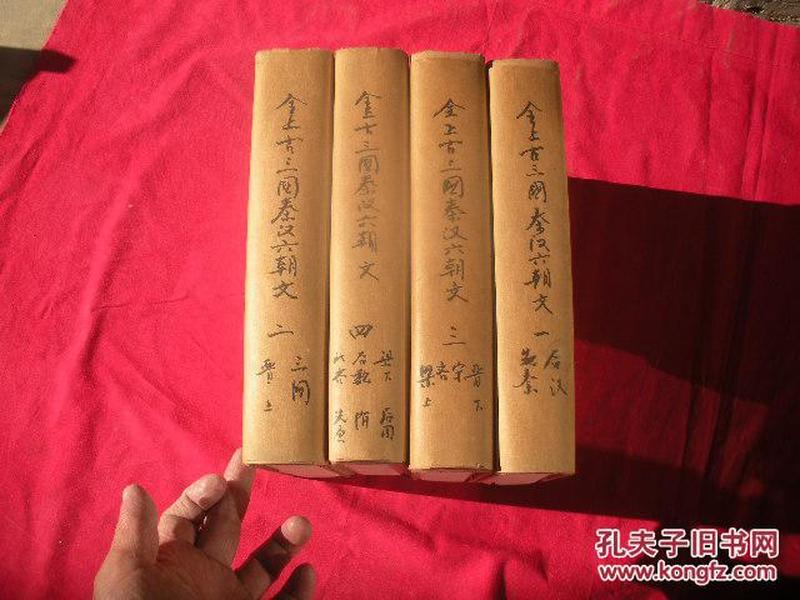 全上古三國秦汉六朝文 二
三国
晋上
全上古三國秦汉六朝文 四
梁下 后周
后魏 隋
北齐 先唐
全上古三國秦汉六朝文 三
晋下
宋
齐
梁上
全上古三國秦汉六朝文 一
后汉
先秦
孔夫子旧书网
www.kongfz.com